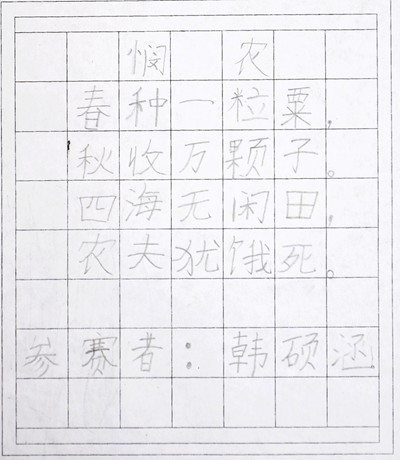 悯 农
春种一粒粟，
秋收万颗子。
四海无闲田，
农夫犹饿死。
参赛者：韩硕涵